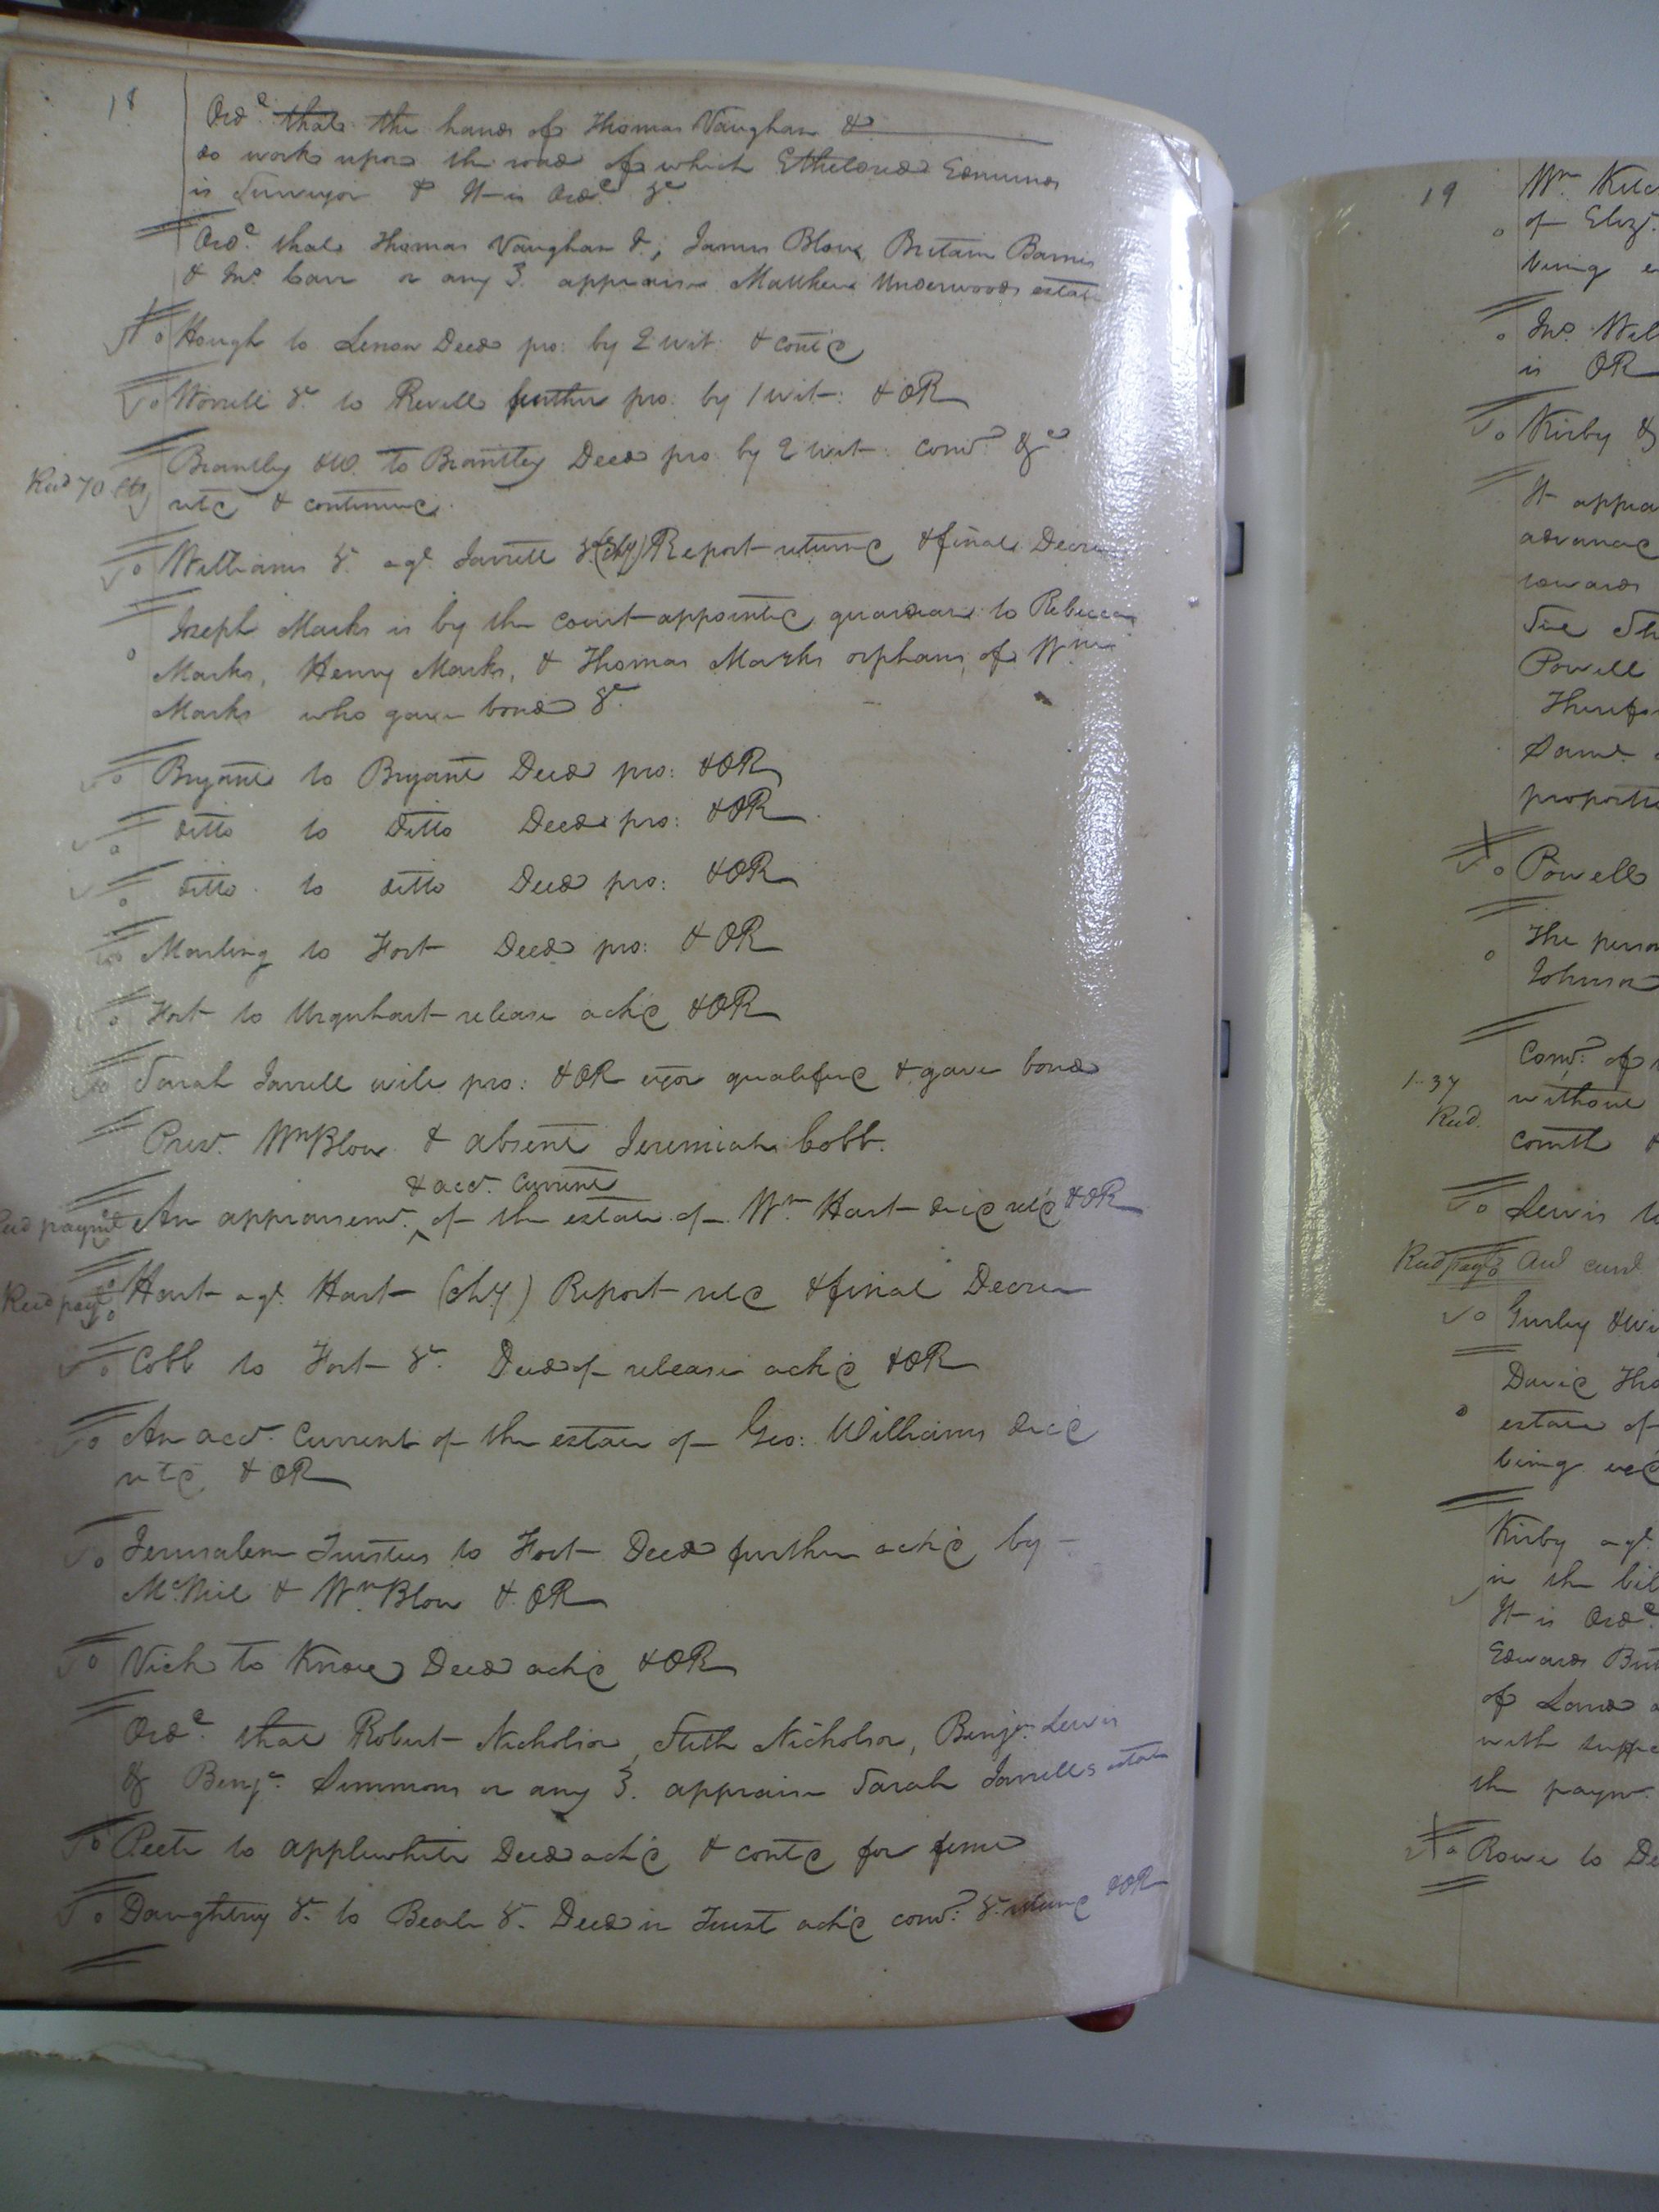 18
Ord.d that the hands of Thomas Vaughan &
do work upon the road of which Etheldred Edmunds
is Surveyor & It is Ord.d &c
Ord.d that Thomas Vaughan &, James Blow, Britain Barnes
& Jno. Carr or any 3. appraise Matthew Underwoods estate
Hough to Lenow Deed pro: by 2 wit: & cont'd
Worrell &c. to Revell further pro: by 1 wit: & OR
Brantley & to Brantley Deed pro: by 2 wit: &c
Red 70
retd & continued.
Williams &c. agt. Jarrell &c (chy) Report returnd & final Decree
Joseph Marks is by the court appointed guardian to Rebecca
Marks, Henry Marks, & Thomas Marks orphans of Wm
Marks who gave bond &c.
Bryant to Bryant Deed pro: & OR
ditto to ditto Deed pro: & OR
ditto to ditto Deed pro: & OR
to Fort Deed pro: & OR
Fort to Urquhart release ack'd & OR
Sarah Jarrell will pro: & OR exor qualified & gave bond
Pres.t Wm Blow & absent Jeremiah Cobb.
& acct. Current
An appraisemt. of the estate of Wm Hart decd retd & OR
Hart agt. Hart (chy) Report retd & final Decree
Cobb to Fort &c. Deed of release ack'd & OR
An acct. Current of the estate of Geo: Williams decd
retd & OR
Jerusalem Trustees to Fort Deed further ack'd by
McNiel & Wm Blow & OR
Vick to Deed ack'd & OR
Ord.d that Robert Nicholson, Flith Nicholson, Benjn Lewis
& Benjn. Simmons or any 3. appraise Sarah Jarrells estate
Peete to applewhite Deed ack'd & contd for feme
Daughtrey &c. to Beale &c. Deed in Trust ack'd &c. returnd & OR
19
Wm
of Eliz.
being
Jno.
is OR
Kirby &
It appea
advanced
towards
Powell
Theref
Same
proporti
Powell
The person
Johnson
of
without
1..37
Lewis
Gurley
David Tho
estate of
being
Kirby agt.
in the bil
It is Ord.d
Edward
of Land
with
the paymt.
Rowe to De